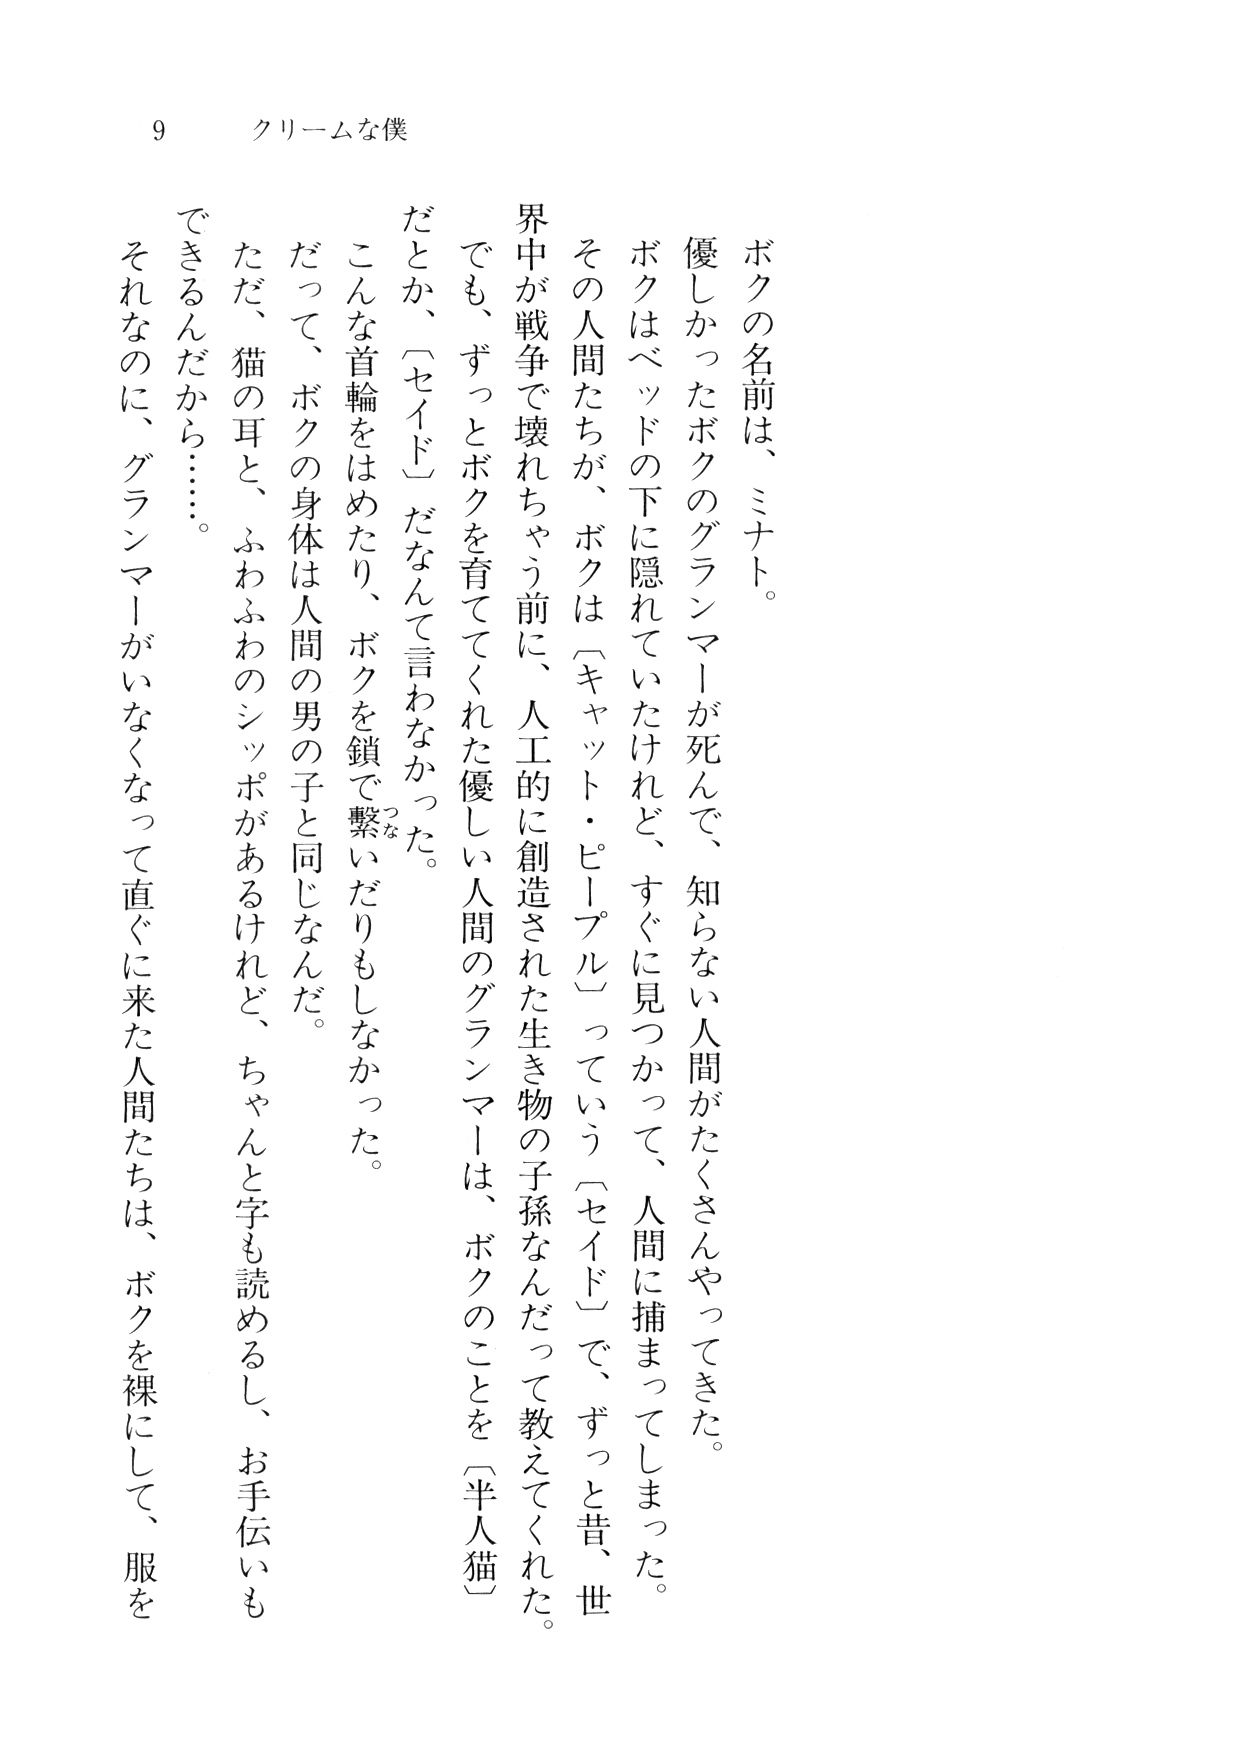 9 クリームな僕
ボクの名前は、ミナト。
優しかったボクのグランマーが死んで、知らない人間がたくさんやってきた。
ボクはベッドの下に隠れていたけれど、すぐに見つかって、人間に捕まってしまった。
その人間たちが、ボクは〔キャット・ピープル〕っていう〔セイド〕で、ずっと昔、世
界中が戦争で壊れちゃう前に、人工的に創造された生き物の子孫なんだって教えてくれた。
でも、ずっとボクを育ててくれた優しい人間のグランマーは、ボクのことを〔半人猫〕
だとか、〔セイド〕だなんて言わなかった。
こんな首輪をはめたり、ボクを鎖で繫いだりもしなかった。
つな
だって、ボクの身体は人間の男の子と同じなんだ。
ただ、猫の耳と、ふわふわのシッポがあるけれど、ちゃんと字も読めるし、お手伝いも
できるんだから……。
それなのに、グランマーがいなくなって直ぐに来た人間たちは、ボクを裸にして、服を